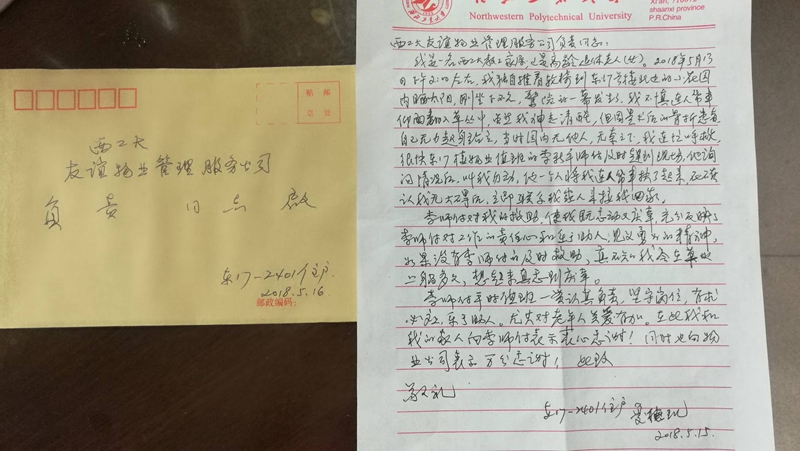 贴 邮
票 处
西工大
友谊物业管理服务公司
负 责 同志 啟
东17-2401住户
2018.5.16
邮政编码:
Northwestern Polytechnical University
Xi'an, 710072
shaanxi province
P.R.China
西工大友谊物业管理服务公司负责同志:
我是一名西工大教工家属,也是高龄退休老人(女)。2018年5月13
日下午2:00左右,我独自推着轮椅到东17号楼北边的小花园
内晒太阳,刚坐下不久,惊险的一幕发生,我不慎连人带车
仰面翻入草丛中,当时我神志清醒,但因患术后的骨折患者
自己无力翻身站立,当时园内无他人,无奈之下,我连忙呼救,
很快东17楼物业值班的李师付及时赶到现场,他询
问情况后,叫我勿动,他一个人将我连人带车扶了起来,在确
认我无大碍后,立即联系我家人来接我回家。
李师付对我的救助,使我既感动又庆幸,充分反映了
李师付对工作的责任心和乐于助人,见义勇为的精神,
如果没有李师付的及时救助,真不知我会在草地
上躺多久,想起来真感到庆幸。
李师付平时值班一贯认真负责,坚守岗位,有求
必应,乐于助人。尤其对老年人关爱有加。在此我和
我的家人向李师付表示衷心感谢!同时也向物
业公司表示万分感谢! 此致
敬礼
东17-2401住户
2018.5.15.